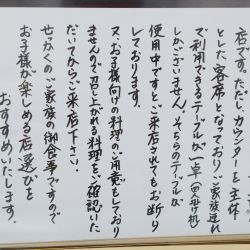 店です。ただしカウンターを主体
とした客席となっており、ご家族連れ
で利用できるテーブルが一卓(四人掛け)
しかございません。そちらのテーブルが
使用中ですとご来店されてもお断り
しております。
又、お子様向けの料理のご用意もしており
ませんので召し上がれる料理を、確認いた
だいてからご来店下さい。
せっかくのご家族の御食事ですので
お子様が楽しめる店選びを
おすすめいたします。